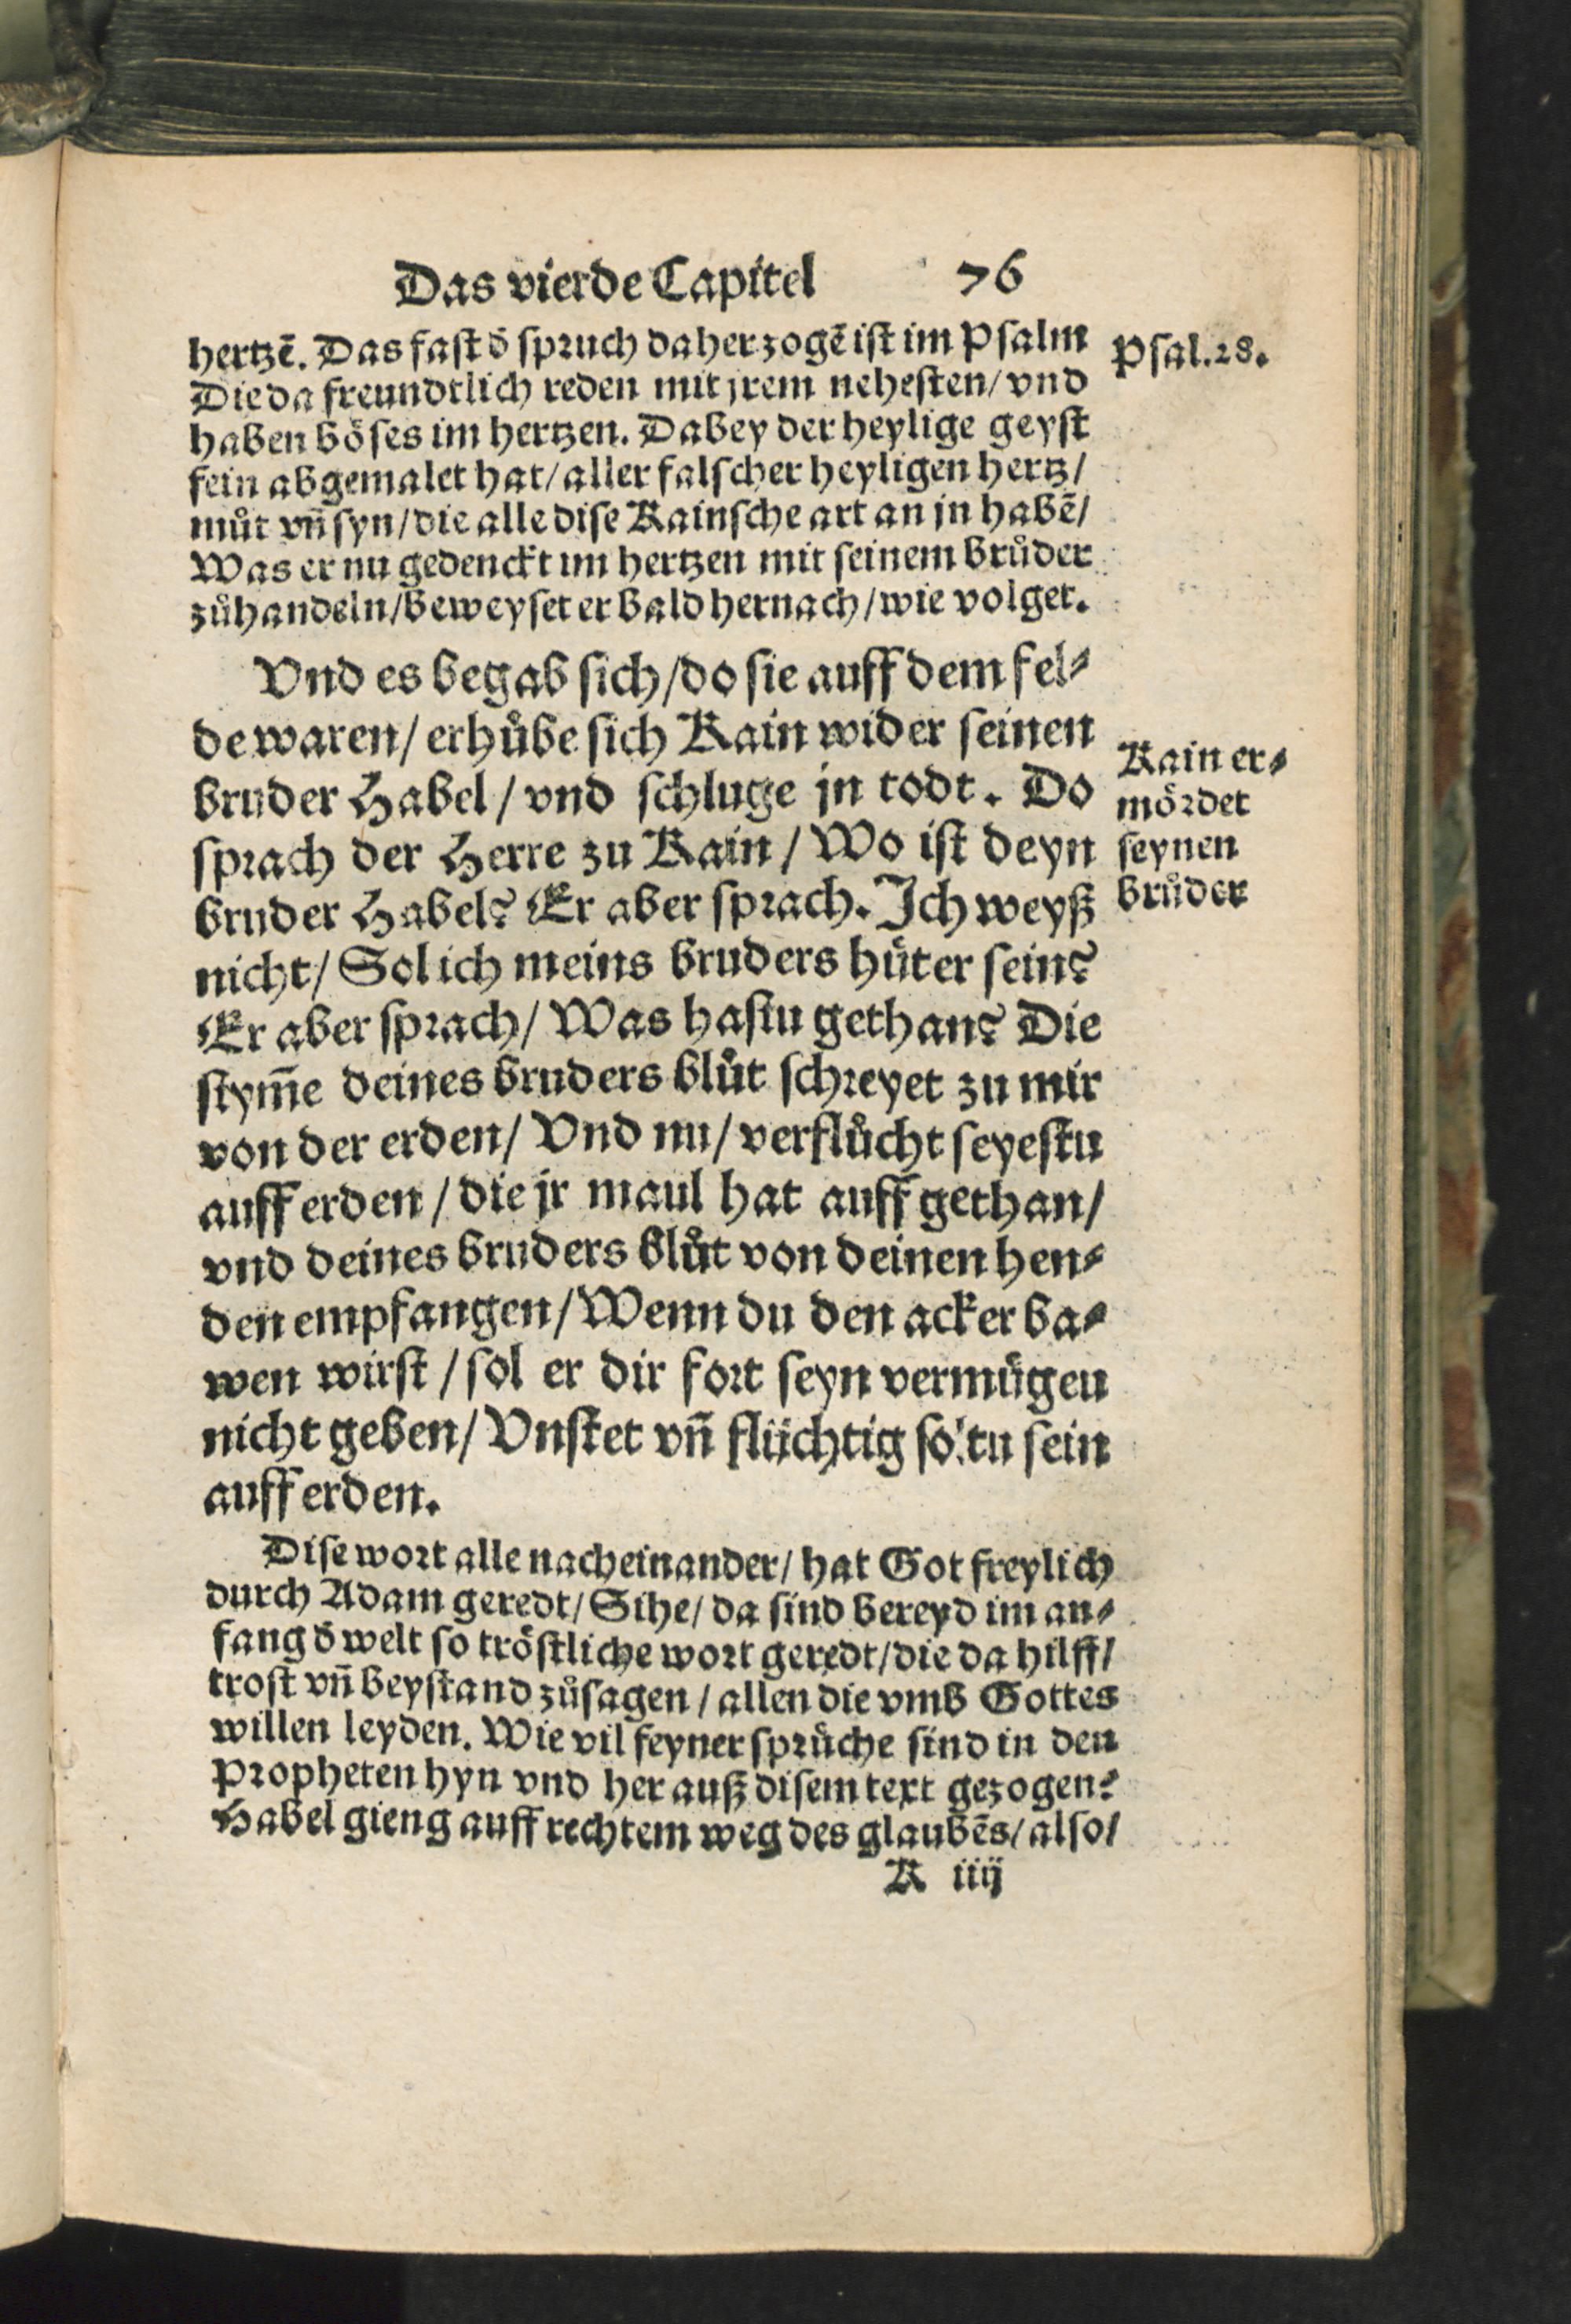 Das vierde Capitel 76
hertzē. Das fast ð spruch daher zogē ist im Psalm
Psal. 28.
Die da freundtlich reden mit jrem nehesten/ vnd
haben böses im hertzen. Dabey der heylige geyst
fein abgemalet hat/ aller falscher heyligen hertz/
můt vñ syn/ die alle dise Kainsche art an jn habē/
Was er nu gedenckt im hertzen mit seinem brůder
zůhandeln/ beweyset er bald hernach/ wie volget.
Vnd es begab sich/ do sie auff dem fel⸗
de waren/ erhůbe sich Kain wider seinen
bruder Habel/ vnd schluge jn todt. Do
sprach der Herre zu Kain/ Wo ist deyn
bruder Habel? Er aber sprach. Ich weyß
Kain er⸗
mördet
seynen
brůder
nicht/ Sol ich meins bruders hüter sein?
Er aber sprach/ Was hastu gethan? Die
stym̄e deines bruders blůt schreyet zu mir
von der erden/ Vnd nu/ verflůcht seyestu
auff erden/ die jr maul hat auff gethan/
vnd deines bruders blůt von deinen hen⸗
den empfangen/ Wenn du den acker ba⸗
wen wirst/ sol er dir fort seyn vermügen
nicht geben/ Vnstet vñ flüchtig soltu sein
auff erden.
Dise wort alle nacheinander/ hat Got freylich
durch Adam geredt/ Sihe/ da sind bereyd im an⸗
fang ð welt so tröstliche wort geredt/ die da hilff/
trost vñ beystand zůsagen/ allen die vmb Gottes
willen leyden. Wie vil feyner sprüche sind in den
Propheten hyn vnd her auß disem text gezogen?
Habel gieng auff rechtem weg des glaubēs/ also/
K iiij